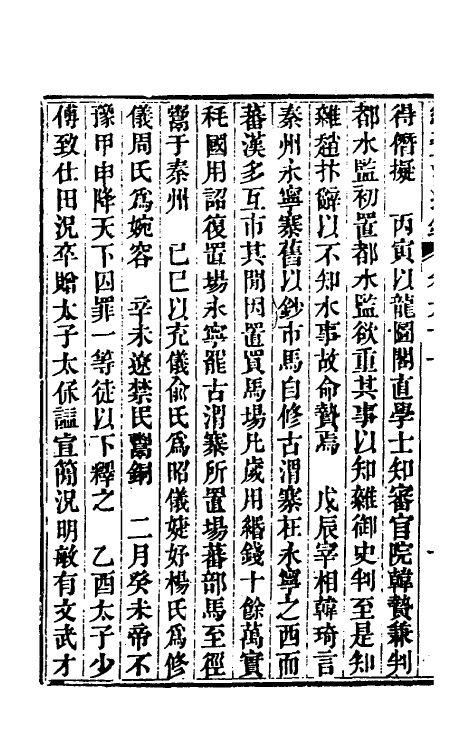 得僭擬　丙寅以龍圖閣直學士知審官院韓贄兼判
都水監初置都水監欲重其事以知雜御史判至是知
雜趙抃辭以不知水事故命贄焉　戊辰宰相韓琦言
秦州永寧寨舊以鈔市馬自修古渭寨在永寧之西而
蕃漢多互市其間因置買馬場凡歲用緡錢十餘萬實
秏國用詔復置場永寧罷古渭寨所置場蕃部馬至徑
鬻于秦州　己巳以充儀俞氏爲昭儀婕妤楊氏爲修
儀周氏爲婉容　辛未遼禁民鬻銅　二月癸未帝不
豫甲申降天下囚罪一等徒以下釋之　乙酉太子少
傅致仕田況卒贈太子太保諡宣簡況明敏有文武才